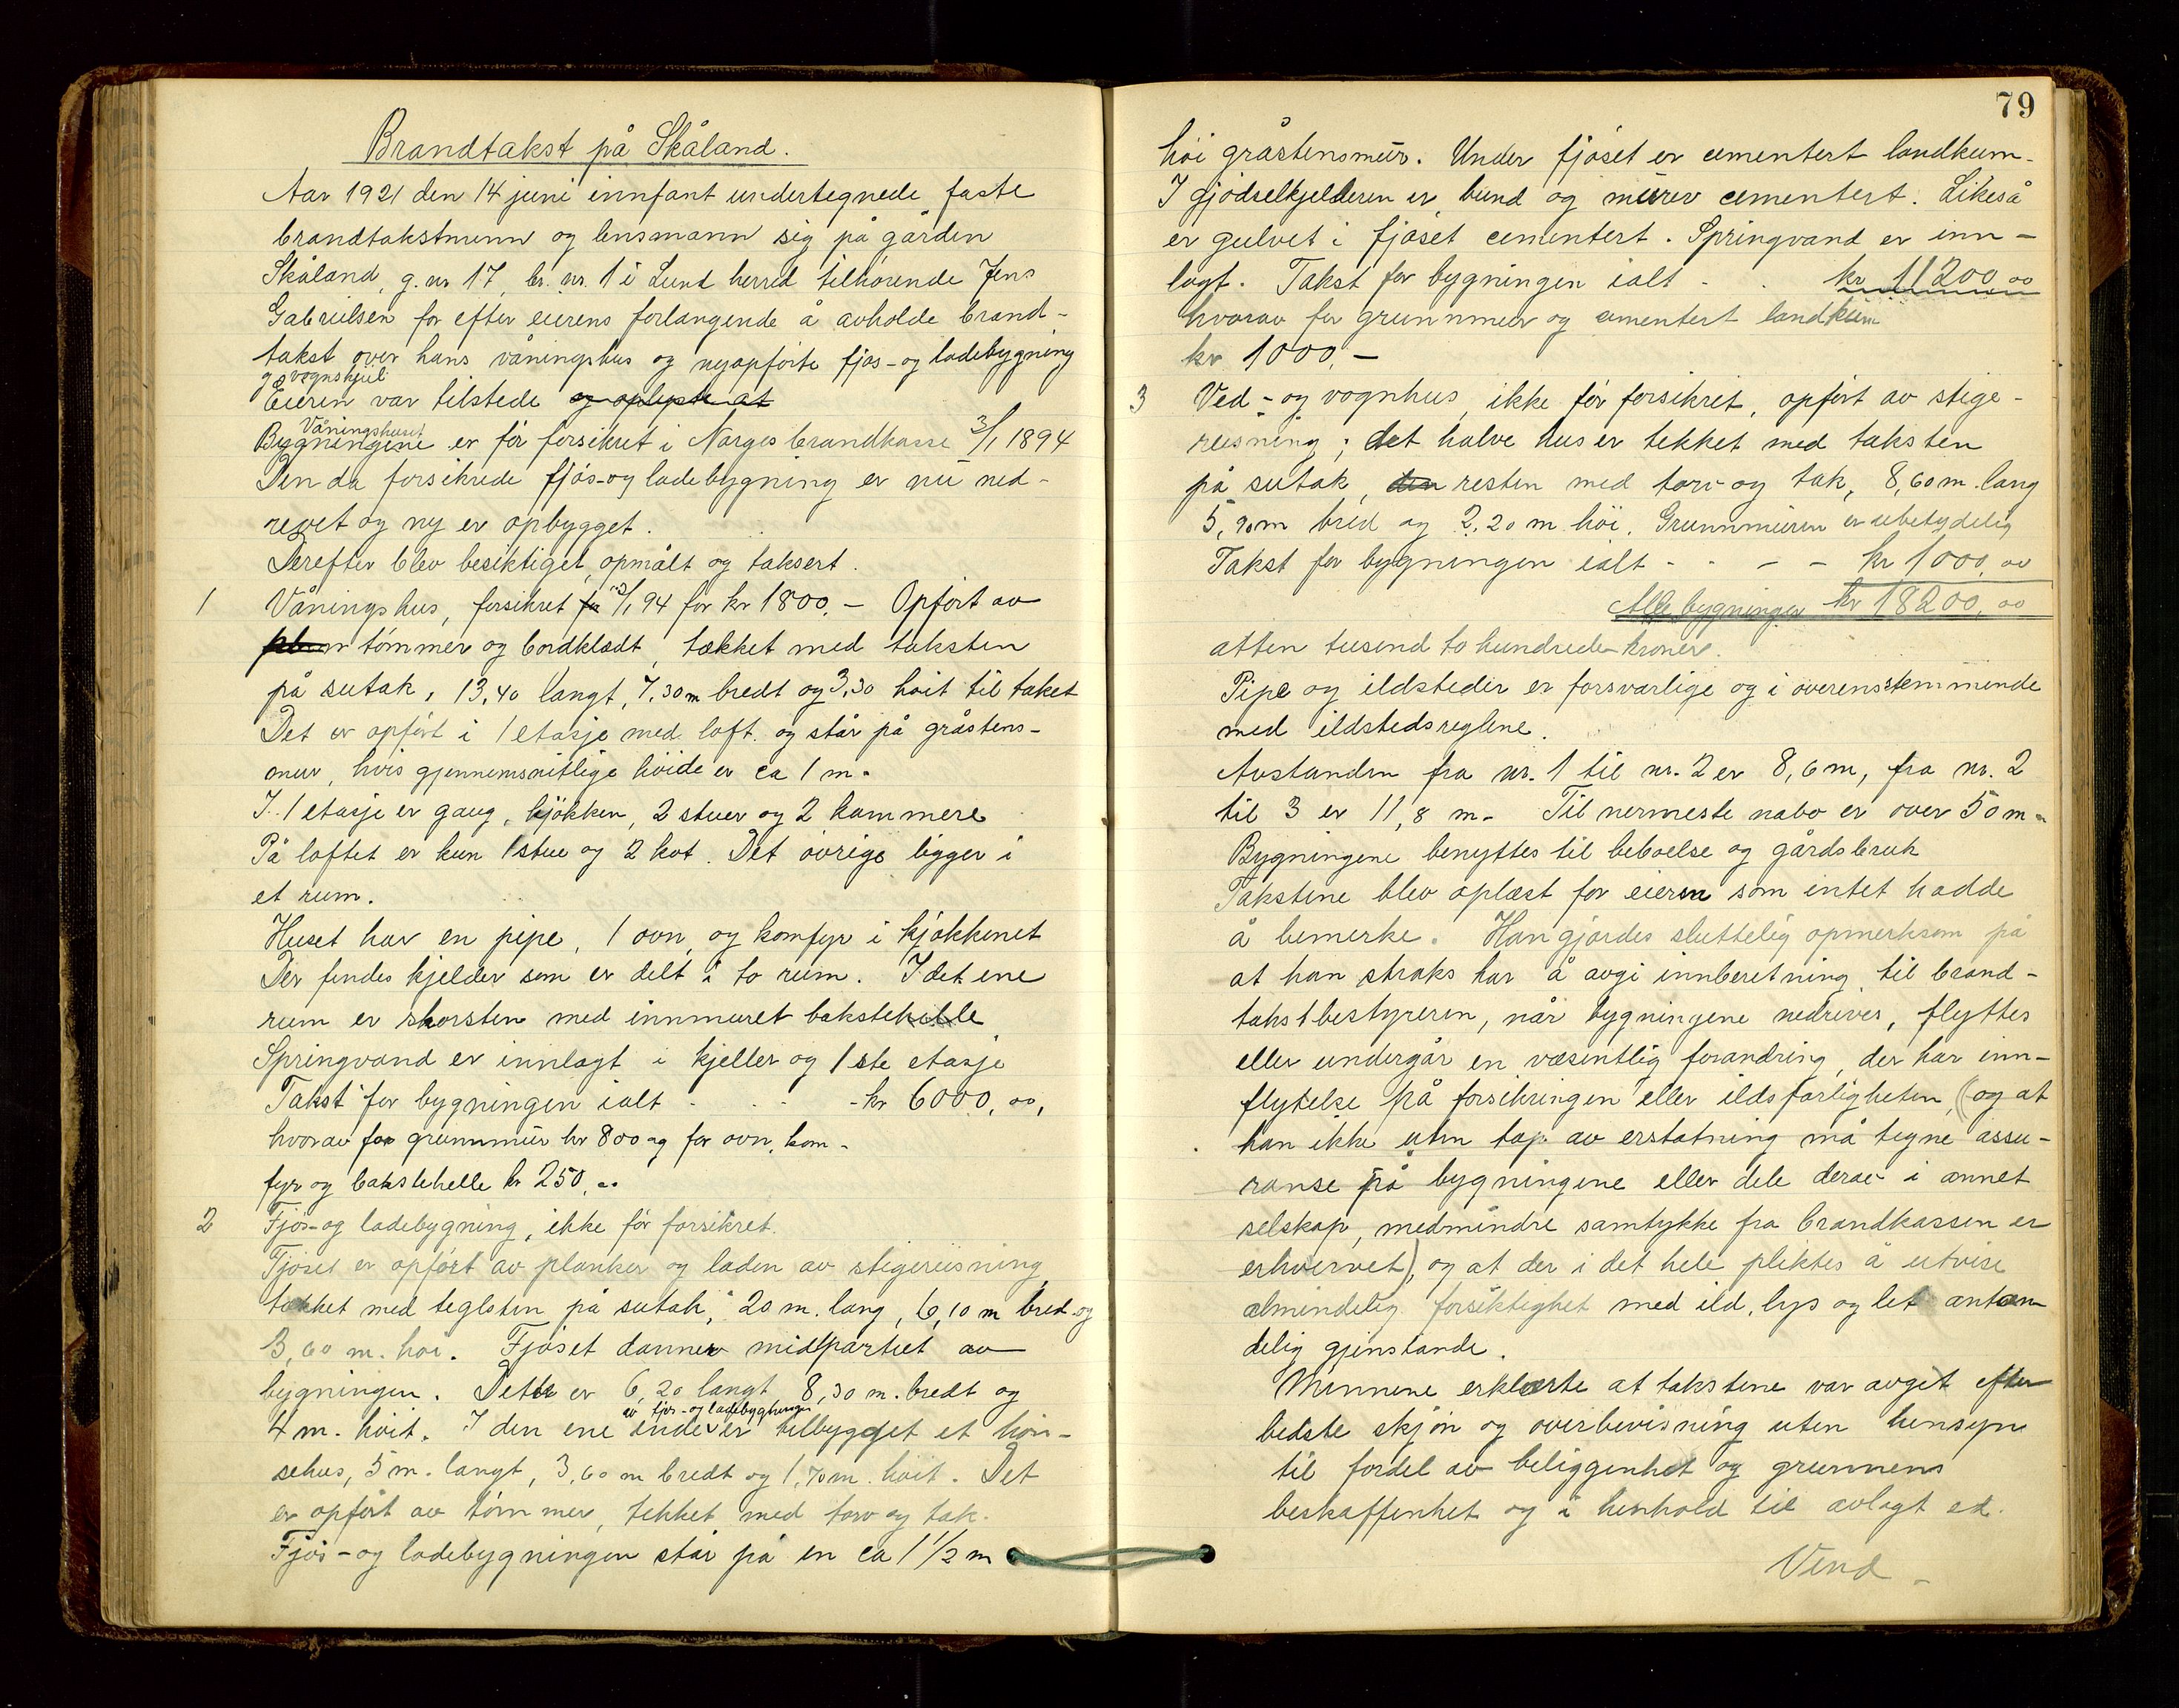 Brandtakst på Skåland.
Aar 1921 den 14 juni innfant undertegnede faste
brandtakstmenn og lensmann sig på gården
Skåland, g. nr 17, br. nr. 1 i Lund herred tilhørende Jens
Gabrielsen for efter eierens forlangende å avholde brand-
takst over hans våningshus og nyopførte fjøs- og ladebygning
og vognskjul
Eieren var tilstede og oplyste at
Våningshuset
Bygningene er før forsikret i Norges brandkasse 3/1 1894
Den da forsikrede fjøs- og ladebygning er nu ned-
revet og ny er opbygget.
Derefter blev besiktiget, opmålt og taksert.
1 Våningshus, forsikret 3/1 94 for kr 1800,- Opført av
tømmer og bordklædt, tækket med taksten
på sutak, 13,40 langt, 7,30 m bredt og 3,30 høit til taket
Det er opført i 1 etasje med loft og står på gråstens-
mur, hvis gjennemsnitlige høide er ca 1 m.
I 1 etasje er gang, kjøkken, 2 stuer og 2 kammere
På loftet er kun 1 stue og 2 kot. Det øvrige ligger i
et rum.
Huset har en pipe, 1 ovn og komfyr i kjøkkenet
Der findes kjelder som er delt i to rum. I det ene
rum er skorsten med innmuret bakstehelle
Springvand er innlagt i kjeller og 1ste etasje
Takst for bygningen ialt - - - kr 6000,00,
hvorav for grunnmur kr 800 og for ovn, kom-
fyr og bakstehelle kr 250,00
2 Fjøs- og ladebygning, ikke før forsikret.
Fjøset er opført av planker og laden av stigereisning
tækket med teglsten på sutak, 20 m. lang, 6,10 m bred og
3,60 m. høi. Fjøset danner midtpartiet av
bygningen. Dette er 6,20 langt, 8,30 m. bredt og
av fjøs- og ladebygningen
4 m. høit. I den ene ende er tilbygget et høn-
sehus, 5 m. langt, 3,60 m bredt og 1,70 m. høit. Det
er opført av tømmer, tekket med torv og tak.
Fjøs- og ladebygningen står på en ca 1 1/2 m
79
høi gråstensmur. Under fjøset er cementert landkum.
I gjødselkjelderen er bund og murer cementert. Likeså
er gulvet i fjøset cementert. Springvand er inn-
lagt. Takst for bygningen ialt - - kr 11200,00
hvorav for grunnmur og cementert landkum
kr 1000,-
3 Ved- og vognhus, ikke før forsikret, opført av stige-
reisning; det halve hus er tekket med taksten
på sutak, den resten med torv og tak, 8,60 m. lang
5,90 m bred og 2,20 m høi. Grunnmuren er ubetydelig
Takst for bygningen ialt - - - - kr 1000,00
Alle bygninger kr 18200,00
atten tusend to hundrede kroner.
Pipe og ildsteder er forsvarlige og i overensstemmende
med ildstedsreglene.
Avstanden fra nr. 1 til nr. 2 er 8,6 m, fra nr. 2
til 3 er 11,8 m. Til nermeste nabo er over 50 m.
Bygningene benyttes til beboelse og gårdsbruk
Takstene blev oplæst for eieren som intet hadde
å bemerke. Han gjordes sluttelig opmerksom på
at han straks har å avgi innberetning til brand-
takstbestyreren, når bygningene nedrives, flyttes
eller undergår en væsentlig forandring, der har inn-
flytelse på forsikringen eller ildsfarligheten, (og at
han ikke uten tap av erstatning må tegne assu-
ranse på bygningene eller dele derav i annet
selskap, medmindre samtykke fra brandkassen er
erhvervet), og at der i det hele pliktes å utvise
almindelig forsiktighet med ild, lys og let antæn-
delig gjenstande.
Mennene erklærte at takstene var avgit efter
bedste skjøn og overbevisning uten hensyn
til fordel av beliggenhet og grunnens
beskaffenhet og i henhold til avlagt ed.
Vend -